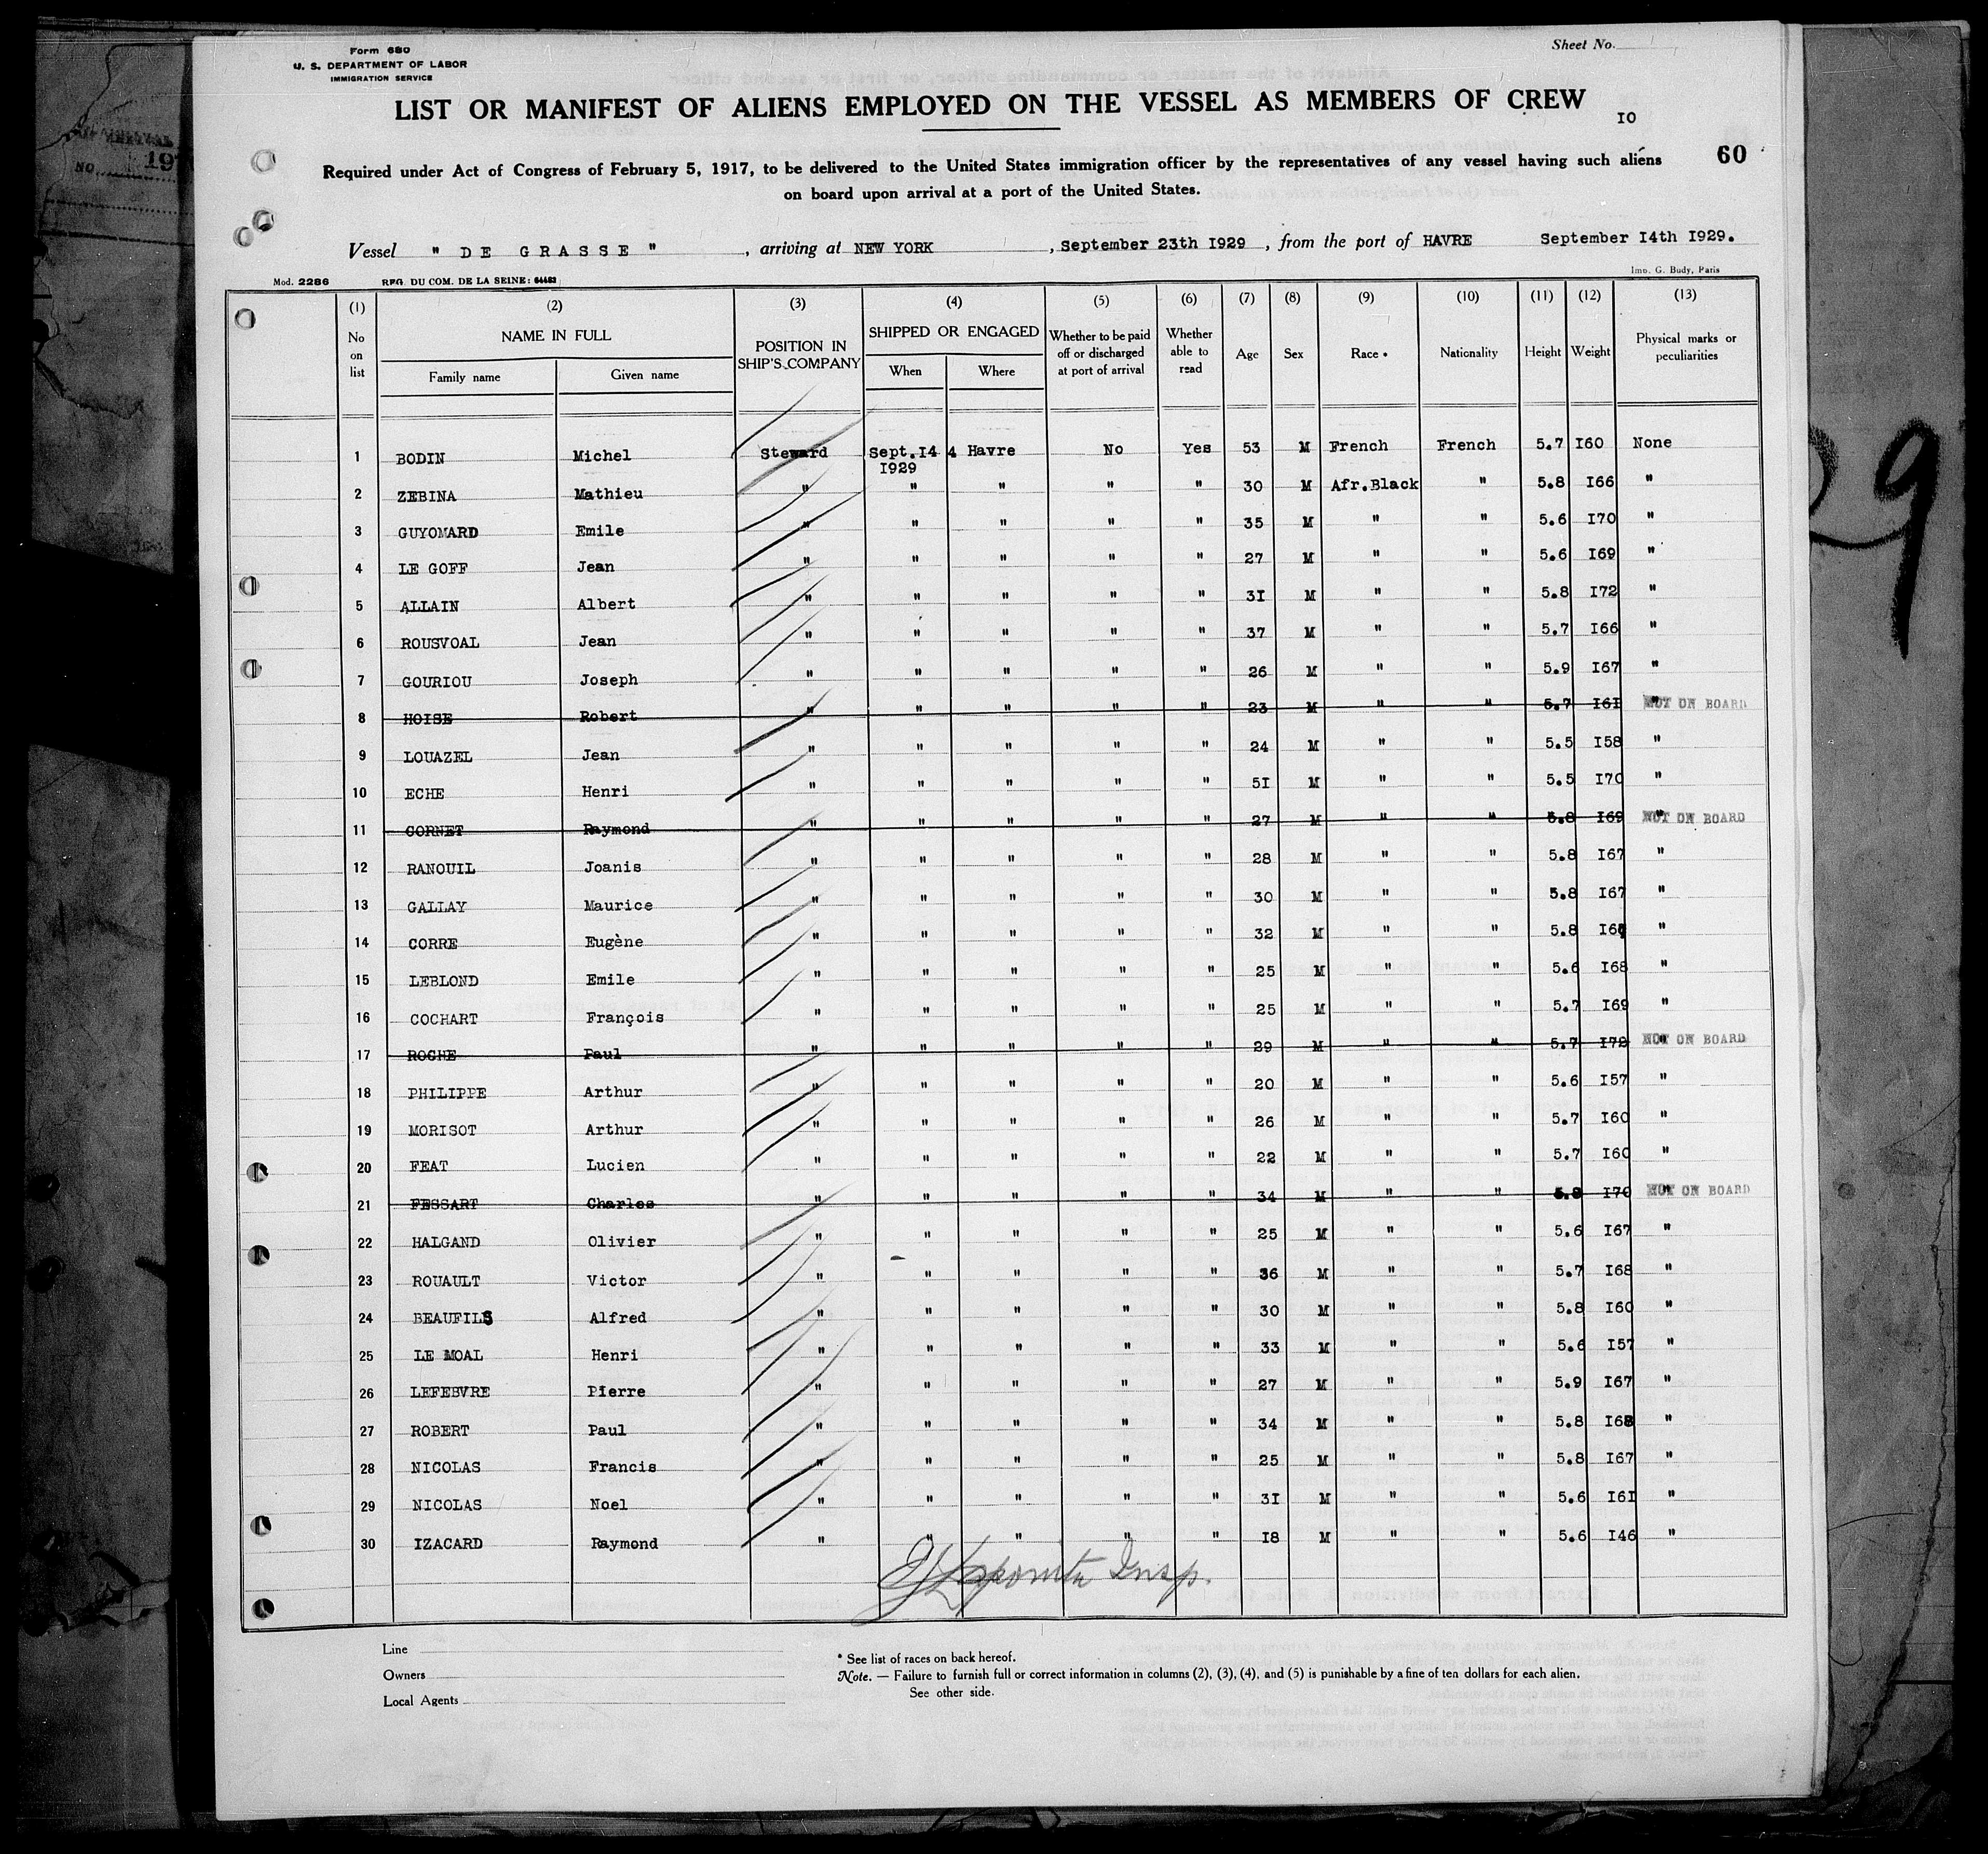 Form 680
U. S. DEPARTMENT OF LABOR
IMMIGRATION SERVICE
Sheet No.
LIST OR MANIFEST OF ALIENS EMPLOYED ON THE VESSEL AS MEMBERS OF CREW
10
60
Required under Act of Congress of February 5, 1917, to be delivered to the United States immigration officer by the representatives of any vessel having such aliens
on board upon arrival at a port of the United States.
Vessel " DE GRASSE " , arriving at NEW YORK , September 23th 1929 , from the port of HAVRE September 14th 1929.
Mod. 2286 REG. DU COM. DE LA SEINE: 64483 Imp. G. Budy, Paris
(1) (2) (3) (4) (5) (6) (7) (8) (9) (10) (11) (12) (13)
No on list NAME IN FULL Family name Given name POSITION IN SHIP'S COMPANY SHIPPED OR ENGAGED When Where Whether to be paid off or discharged at port of arrival Whether able to read Age Sex Race * Nationality Height Weight Physical marks or peculiarities
1 BODIN Michel Steward Sept.14 4 Havre No Yes 53 M French French 5.7 160 None
1929
2 ZEBINA Mathieu " " " " " 30 M Afr.Black " 5.8 166 "
3 GUYOMARD Emile " " " " " 35 M " " 5.6 170 "
4 LE GOFF Jean " " " " " 27 M " " 5.6 169 "
5 ALLAIN Albert " " " " " 31 M " " 5.8 172 "
6 ROUSVOAL Jean " " " " " 37 M " " 5.7 166 "
7 GOURIOU Joseph " " " " " 26 M " " 5.9 167 "
8 HOISE Robert " " " " " 23 M " " 5.7 161 " NOT ON BOARD
9 LOUAZEL Jean " " " " " 24 M " " 5.5 158 "
10 ECHE Henri " " " " " 51 M " " 5.5 170 "
11 CORNET Raymond " " " " " 27 M " " 5.8 169 " NOT ON BOARD
12 RANOUIL Joanis " " " " " 28 M " " 5.8 167 "
13 GALLAY Maurice " " " " " 30 M " " 5.8 167 "
14 CORRE Eugène " " " " " 32 M " " 5.8 "
15 LEBLOND Emile " " " " " 25 M " " 5.6 168 "
16 COCHART François " " " " " 25 M " " 5.7 169 "
17 ROCHE Paul " " " " " 29 M " " 5.7 172 " NOT ON BOARD
18 PHILIPPE Arthur " " " " " 20 M " " 5.6 157 "
19 MORISOT Arthur " " " " " 26 M " " 5.7 160 "
20 FEAT Lucien " " " " " 22 M " " 5.7 160 "
21 FESSART Charles " " " " " 34 M " " 5.8 170 " NOT ON BOARD
22 HALGAND Olivier " " " " " 25 M " " 5.6 167 "
23 ROUAULT Victor " " " " " 36 M " " 5.7 168 "
24 BEAUFILS Alfred " " " " " 30 M " " 5.8 160 "
25 LE MOAL Henri " " " " " 33 M " " 5.6 157 "
26 LEFEBVRE Pierre " " " " " 27 M " " 5.9 167 "
27 ROBERT Paul " " " " " 34 M " " 5.8 168 "
28 NICOLAS Francis " " " " " 25 M " " 5.8 167 "
29 NICOLAS Noel " " " " " 31 M " " 5.6 161 "
30 IZACARD Raymond " " " " " 18 M " " 5.6 146 "
Insp.
Line
Owners
Local Agents
* See list of races on back hereof.
Note. — Failure to furnish full or correct information in columns (2), (3), (4), and (5) is punishable by a fine of ten dollars for each alien.
See other side.